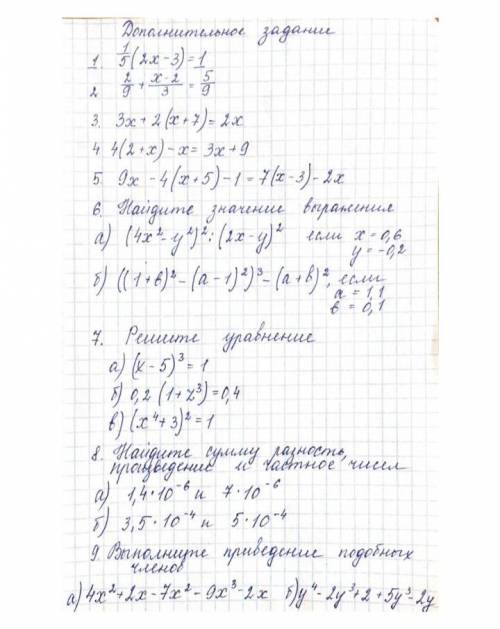 Дополнительное задание
1. 1/5 (2x-3)=1
2. 2/9 + (x-2)/3 = 5/9
3. 3x+2(x+7)=2x
4. 4(2+x)-x=3x+9
5. 9x-4(x+5)-1=7(x-3)-2x
6. Найдите значение выражения
а) (4x²-y²)² : (2x-y)² если x=0,6
y=-0,2
б) ((1+в)²-(а-1)²)³-(а+в)², если
а=1,1
в=0,1
7. Решите уравнение
а) (x-5)³=1
б) 0,2(1+z³)=0,4
в) (x⁴+3)²=1
8. Найдите сумму разность,
произведение и частное чисел
а) 1,4·10⁻⁶ и 7·10⁻⁶
б) 3,5·10⁻⁴ и 5·10⁻⁴
9. Выполните приведение подобных
членов
а) 4x²+2x-7x²-9x³-2x б) y⁴-2y³+2+5y³-2y